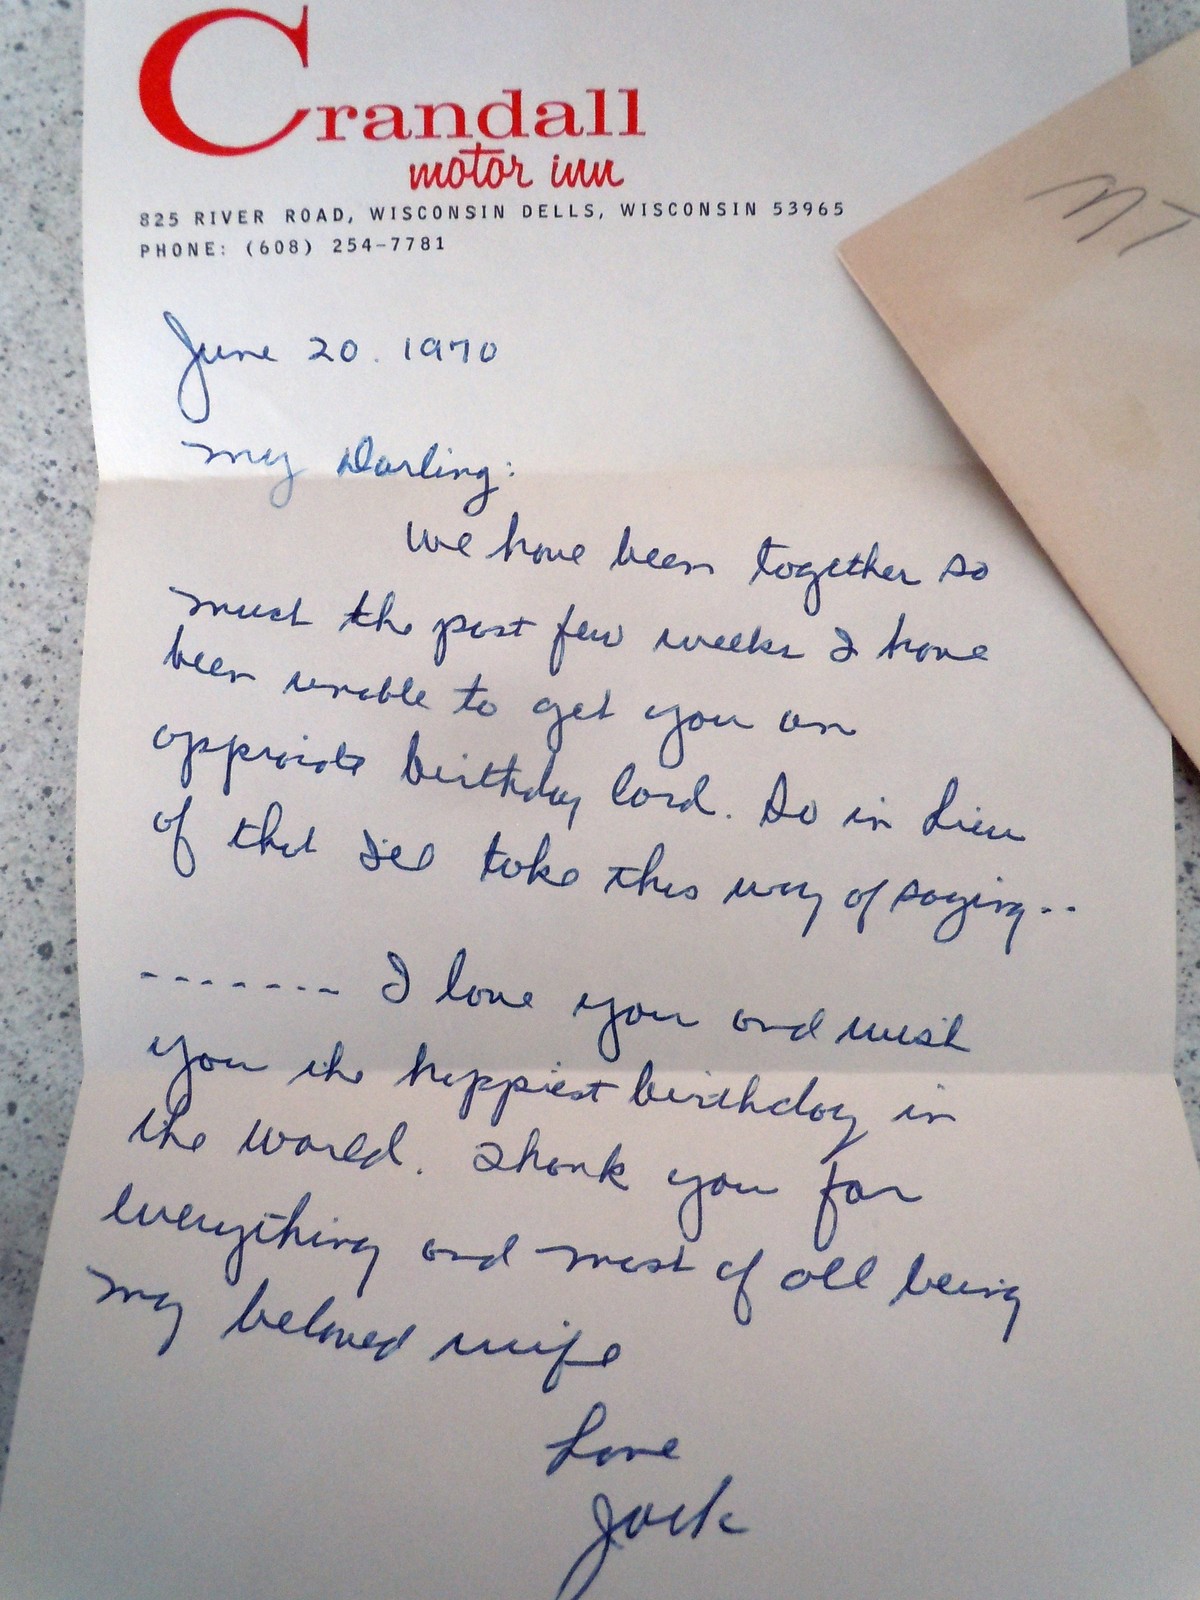 Crandall
motor inn
825 RIVER ROAD, WISCONSIN DELLS, WISCONSIN 53965
PHONE: (608) 254-7781
June 20. 1970
My Darling:
We have been together so
much the past few weeks I have
been unable to get you an
appropriate birthday card. So in lieu
of that I'll take this way of saying--
------- I love you and wish
you the happiest birthday in
the world. Thank you for
everything and most of all being
my beloved wife
Love
Jack